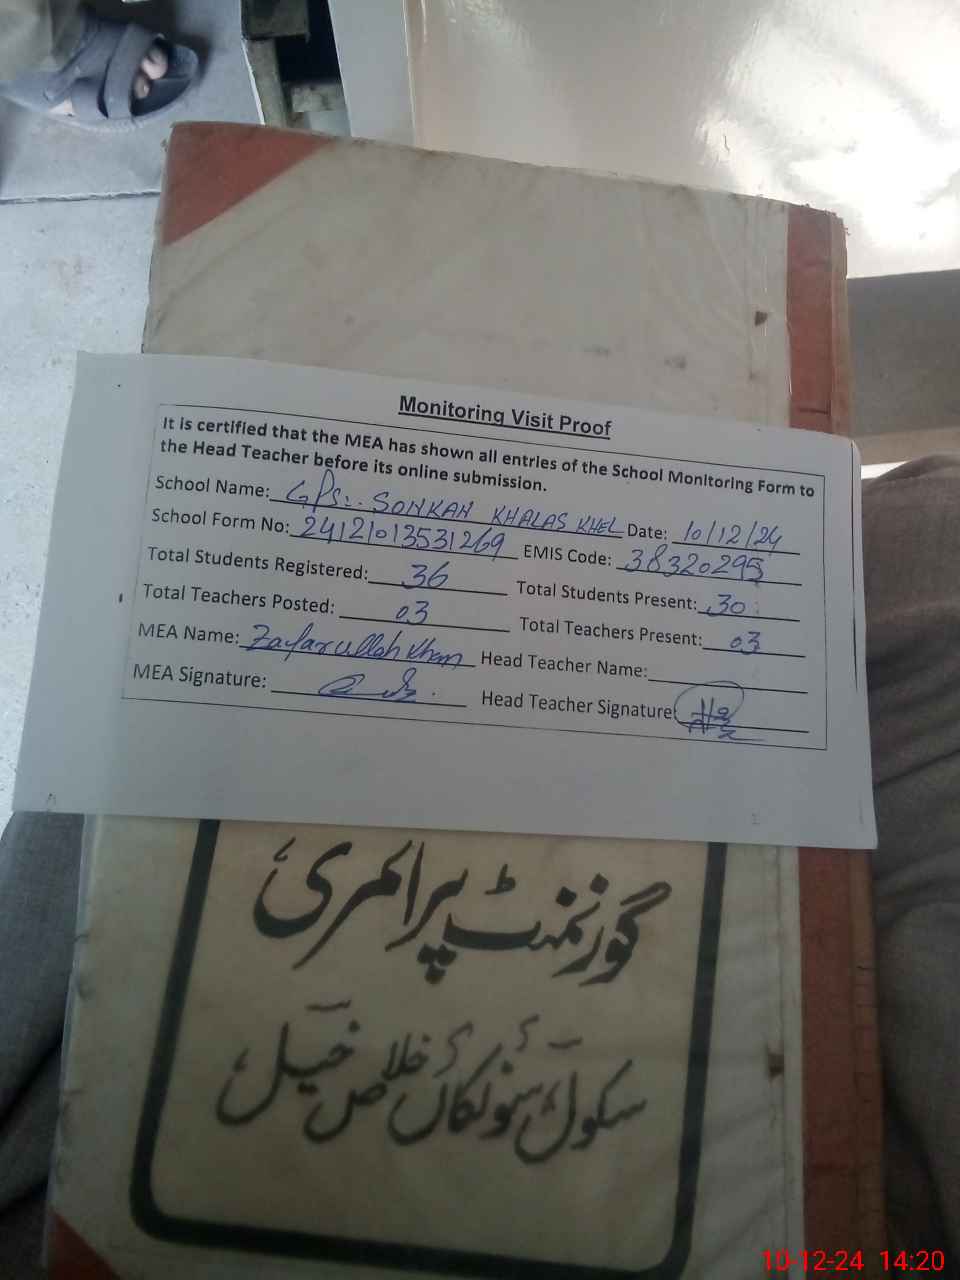 Monitoring Visit Proof
It is certified that the MEA has shown all entries of the School Monitoring Form to
the Head Teacher before its online submission.
School Name: GPS:. SONKAN KHALAS KHEL Date: 10/12/24
School Form No: 24121013531269 EMIS Code: 38320295
Total Students Registered: 36 Total Students Present: 30
Total Teachers Posted: 03 Total Teachers Present: 03
MEA Name: Zafarullah Khan Head Teacher Name:
MEA Signature: Head Teacher Signature:
گورنمنٹ پرائمری
سکول سونکاں خلاص خیل
10-12-24 14:20